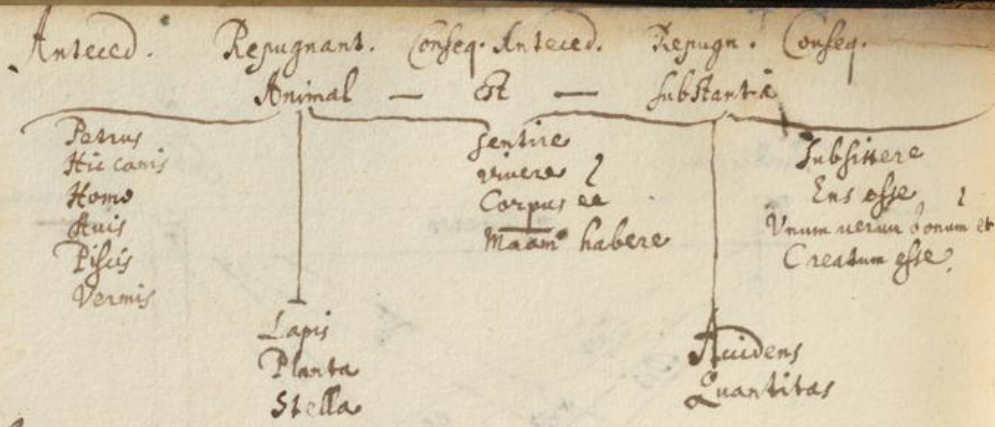 Anteced. Repugnant. Conseq. Anteced. Repugn. Conseq.
Animal — Est — substantia
Petrus
Hic canis
Homo
Avis
Piscis
Vermis
Lapis
Planta
Stella
sentire
vivere
Corpus ee
Maam habere
Accidens
Quantitas
Subsistere
Ens esse
Unum verum bonum et
Creatum esse.